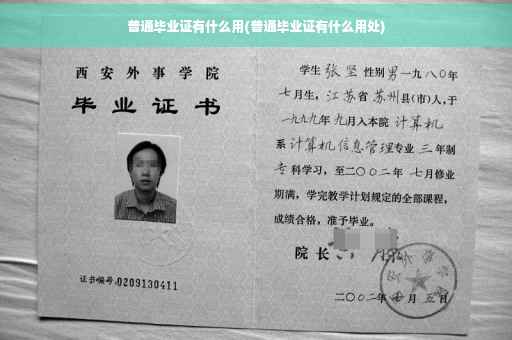 普通毕业证有什么用(普通毕业证有什么用处)
西安外事学院
毕业证书
证书编号:0209130411
学生 张坚 性别 男 一九八〇年
七月生, 江苏省 苏州县(市)人,于
一九九九年 九月入本院 计算机
系 计算机信息管理 专业 三 年制
专 科学习, 至二〇〇二年 七月修业
期满, 学完教学计划规定的全部课程,
成绩合格, 准予毕业。
院长
二〇〇二年 月 五日